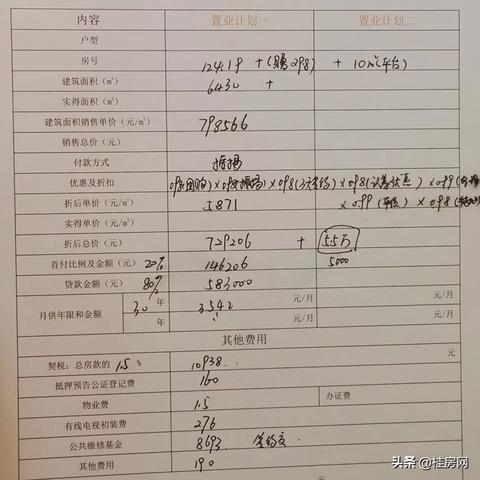 内容 置业计划一 置业计划二
户型
房号 124.19 + (赠298) + 10㎡(平台)
建筑面积 (㎡) 6430 +
实得面积 (㎡)
建筑面积销售单价 (元/㎡) 798566
销售总价 (元)
付款方式 按揭
优惠及折扣 ×0.98 ×0.98 ×0.99
折后单价 (元/㎡) 5871 ×0.99 ×0.98
实得单价 (元/㎡)
折后总价 (元) 729206 + 5.5万
首付比例及金额 (元) 20% 146206 5000
贷款金额 (元) 80% 583000
月供年限和金额 30 年 3542 元/月 元/月
年 元/月 元/月
其他费用
契税:总房款的 1.5 % 10938 元
抵押预告公证登记费 160
物业费 1.5 办证费
有线电视初装费 276
公共维修基金 8693 签约交
其他费用 190
头条 @桂房网